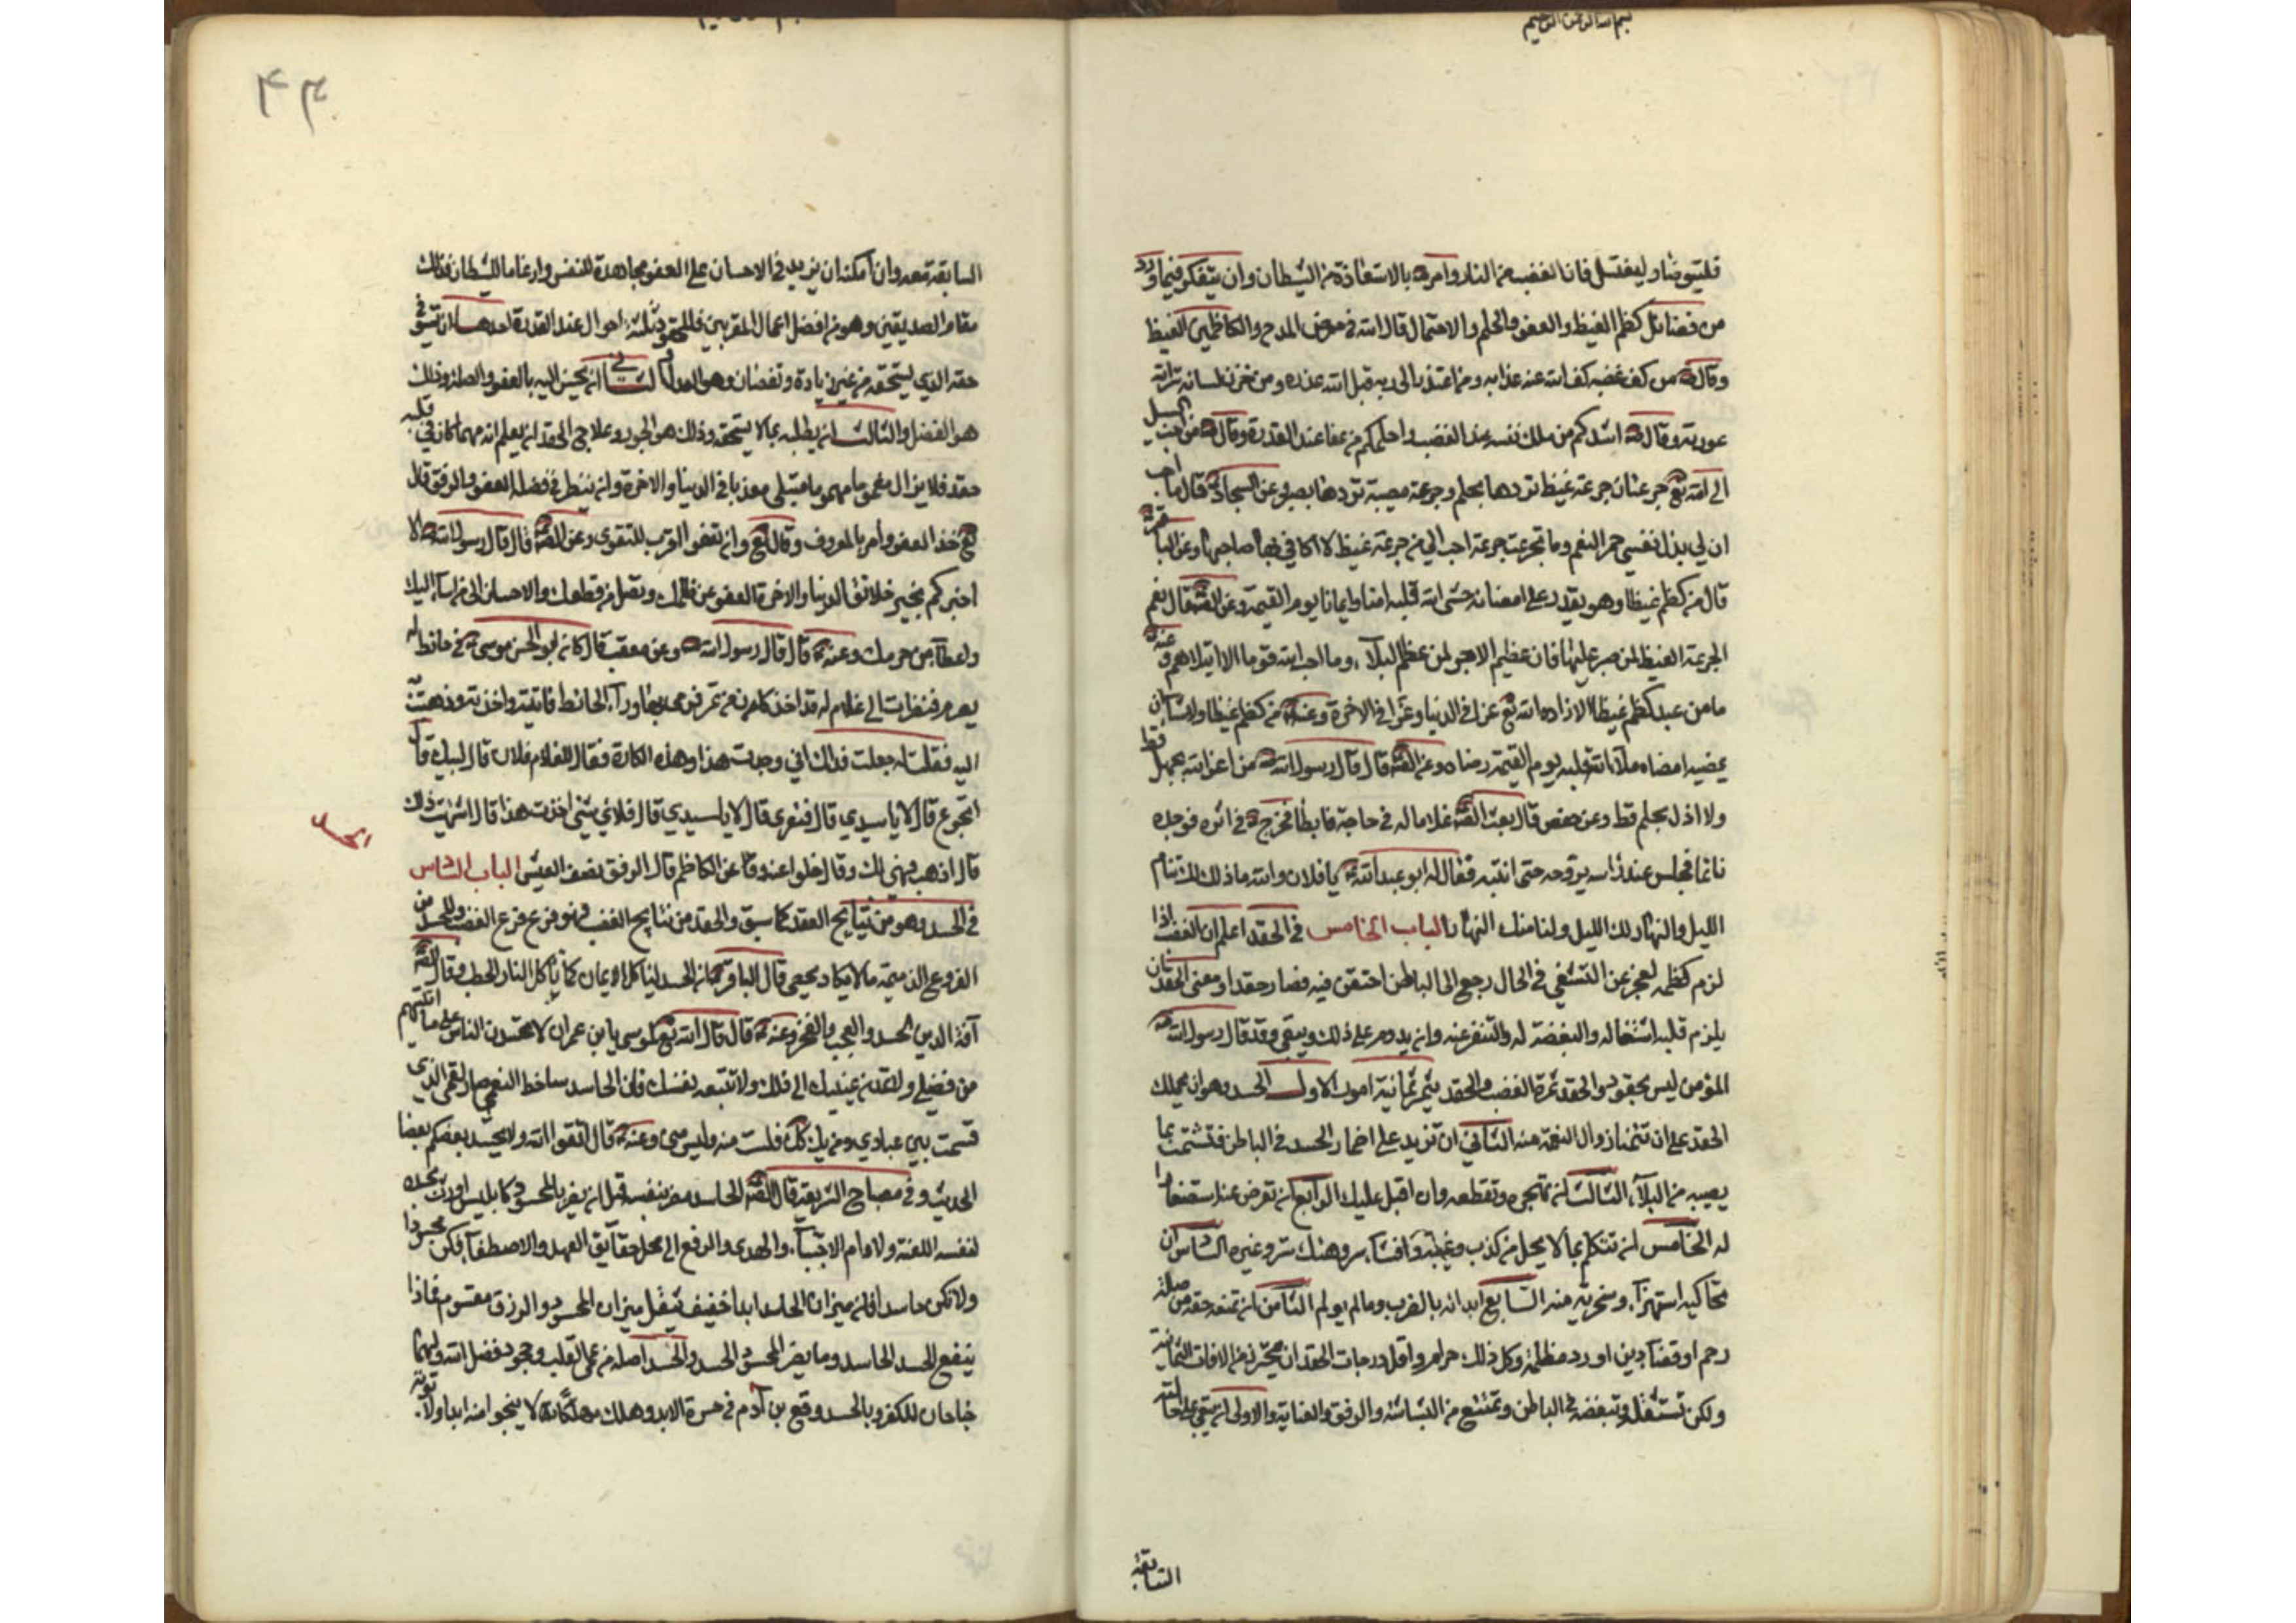 بسم الله الرحمن الرحيم
فليتوضا وليغتسل فان الغضب من النار وامره بالاستعاذة من الشيطان وان يتفكر فيما ورد
من فضائل كظم الغيظ والعفو والحلم والاحتمال قال الله في معرض المدح والكاظمين الغيظ
وقال ص من كف غضبه كف الله عنه عذابه ومن اعتذر الى ربه قبل الله عذره ومن خزن لسانه ستر الله
عورته وقال ص اشدكم من ملك نفسه عند الغضب واحلمكم من عفا عند القدرة وقال ص من احب السبيل
الى الله تع جرعتان جرعة غيظ تردها بحلم وجرعة مصيبة تردها بصبر وعن السجاد ع قال ما احب
ان لي بذل نفسي حمر النعم وما تجرعت جرعة احب الي من جرعة غيظ لا اكافي بها صاحبها وعن الباقر ع
قال من كظم غيظا وهو يقدر على امضائه حشى الله قلبه امنا وايمانا يوم القيمة وعن الصادق ع قال نعم
الجرعة الغيظ لمن صبر عليها فان عظيم الاجر لمن عظم البلاء وما احب الله قوما الا ابتلاهم وعنه ع
ما من عبد كظم غيظا الا زاده الله تع عزا في الدنيا وعزا في الاخرة وعنه ع من كظم غيظا ولو شاء ان
يمضيه امضاه ملأ الله قلبه يوم القيمة رضاه وعن الصادق ع قال قال رسول الله ص ما اعز الله بجهل قط
ولا اذل بحلم قط وعن حفص قال بعث الصادق ع غلاما له في حاجة فابطأ فخرج ع في اثره فوجده
نائما فجلس عند راسه يروحه حتى انتبه فقال له ابو عبد الله ع يا فلان والله ما ذلك لك تنام
الليل والنهار لك الليل ولنا منك النهار الباب الخامس في الحقد اعلم ان الغضب اذا
لزم كظمه لعجز عن التشفي في الحال رجع الى الباطن احتقن فيه فصار حقدا ومعنى الحقد ان
يلزم قلبه استثقاله والبغضة له والتنفر عنه وان يدوم على ذلك ويبقى وقد قال رسول الله ص
المؤمن ليس بحقود والحقد ثمرة الغضب والحقد يثمر ثمانية امور الاول الحسد وهو ان يحملك
الحقد على ان تتمنى زوال النعمة منه الثاني ان تزيد على اضمار الحسد في الباطن فتشمت بما
يصيبه من البلاء الثالث ان تهجره وتقطعه وان اقبل عليك الرابع ان تعرض عنه استصغارا
له الخامس ان تتكلم بما لا يحل من كذب وغيبة وافشاء سر وهتك ستر وغيره السادس ان
تحاكيه استهزاء وسخرية منه السابع ايذائه بالضرب وما لم يولم الثامن ان تمنعه حقه من صلة
رحم او قضاء دين او رد مظلمة وكل ذلك حرام واقل درجات الحقد ان تحترز من الافات الثمانية
ولكن تستثقله وتبغضه في الباطن وتمتنع من البشاشة والرفق والعناية والاولى ان يبقى على حالته
السابقة
السابقة معه وان امكنه ان يزيد في الاحسان على العفو مجاهدة للنفس وارغاما للشيطان فذلك
مقام الصديقين وهو من افضل اعمال المقربين فللحقود ثلثة احوال عند القدرة احدها ان يستوفي
حقه الذي يستحقه من غير زيادة ونقصان وهو العدل الثاني ان يحسن اليه بالعفو والصلة وذلك
هو الفضل والثالث ان يظلمه بما لا يستحقه وذلك هو الجور وعلاج الحقد ان يعلم انه مهما كان في قلبه
حقد فلا يزال مغموما مهموما مبتلى معذبا في الدنيا والاخرة وان ينظر في فضل العفو والرفق قال
تع خذ العفو وأمر بالمعروف وقال تع وان تعفو اقرب للتقوى وعن الصادق ع قال قال رسول الله ص الا
اخبركم بخير خلائق الدنيا والاخرة العفو عن ظلمك وتصل من قطعك والاحسان الى من اساء اليك
واعطاء من حرمك وعنه ع قال قال رسول الله ص وعن معتب قال كان ابو الحسن موسى ع في حائط له
يصرم فنظرت الى غلام له قد اخذ كارة من تمر فرمى بها وراء الحائط فاتيته واخذته وذهبت به
اليه فقلت له جعلت فداك اني وجدت هذا وهذه الكارة فقال للغلام فلان قال لبيك قال
اتجوع قال لا يا سيدي قال فتعرى قال لا يا سيدي قال فلاي شيء اخذت هذا قال اشتهيت ذلك
قال اذهب فهي لك وقال خلوا عنه وعن الكاظم قال الرفق نصف العيش الباب السادس
الحسد
في الحسد وهو من نتايج الحقد كما سبق والحقد من نتايج الغضب فهو فرع فرع الغضب وللحسد من
الفروع الذميمة ما لا يكاد يحصى قال الباقر ع ان الحسد ليأكل الايمان كما يأكل النار الحطب وقال الصادق ع
آفة الدين الحسد والعجب والفخر وعنه ع قال قال الله تع لموسى يا ابن عمران لا تحسدن الناس على ما اتيتهم
من فضلي ولا تمدن عينيك الى ذلك ولا تتبعه نفسك فان الحاسد ساخط لنعمي صاد لقسمي الذي
قسمت بين عبادي ومن يك كذلك فلست منه وليس مني وعنه ع قال اتقوا الله ولا يحسد بعضكم بعضا
الحديث وفي مصباح الشريعة قال الصادق ع الحاسد مضر بنفسه قبل ان يضر بالمحسود كابليس اورث بحسده
لنفسه اللعنة ولادم الاجتباء والهدى والرفع الى محل حقائق العهد والاصطفاء فكن محسودا
ولا تكن حاسدا فان ميزان الحاسد ابدا خفيف بثقل ميزان المحسود والرزق مقسوم فماذا
ينفع الحسد الحاسد وما يضر المحسود الحسد والحسد اصله من عمى القلب وجحود فضل الله وهما
جناحان للكفر وبالحسد وقع ابن آدم في حسرة الابد وهلك مهلكا لا ينجو منه ابدا ولا توبة